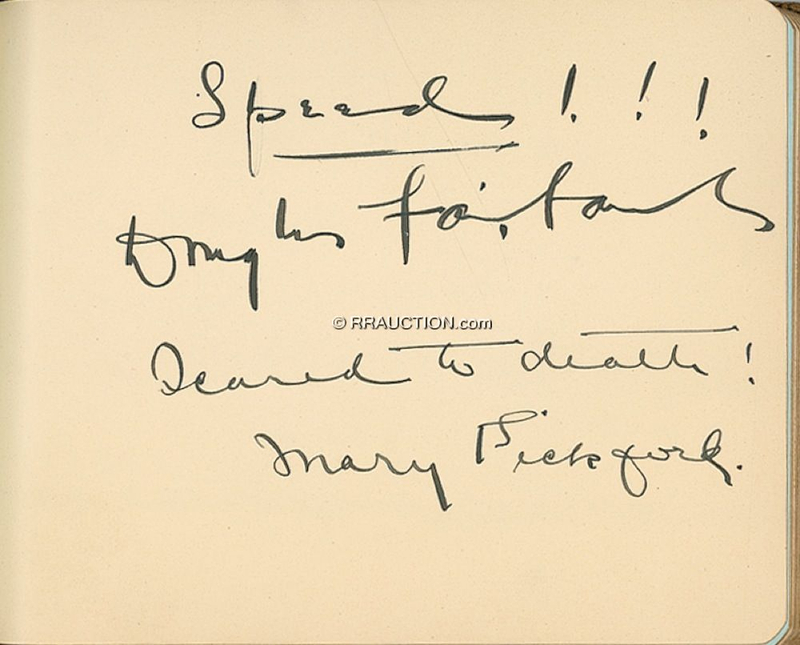 Speed ! ! !
Douglas Fairbanks
© RRAUCTION.com
Scared to death !
Mary Pickford.